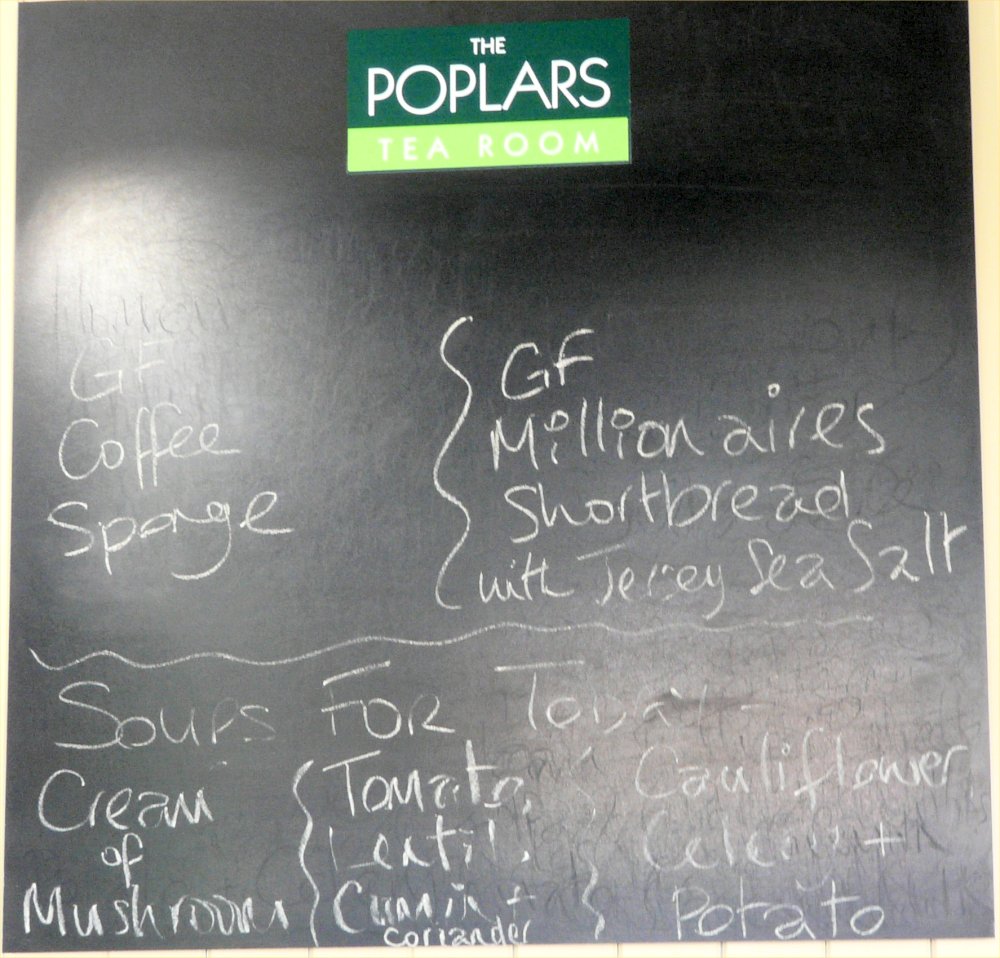 THE
POPLARS
TEA ROOM
GF
Coffee
Sponge
GF
Millionaires
Shortbread
with Jersey Sea Salt
Soups For Today
Cream
of
Mushroom
Tomato,
Lentil,
Cumin +
coriander
Cauliflower,
Celery +
Potato